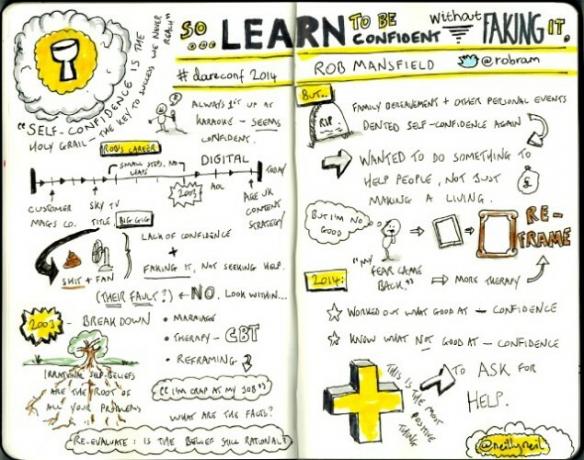 SO
... LEARN TO BE CONFIDENT without FAKING IT.
# dareconf 2014
"SELF-CONFIDENCE IS THE
HOLY GRAIL - THE KEY TO SUCCESS WE NEVER
REACH"
ALWAYS 1ST UP AT
KARAOKE - SEEMS
CONFIDENT.
ROB'S CAREER
SMALL STEPS, NO
LEAPS
DIGITAL
TODAY
2003
AOL
CUSTOMER
MAGS CO.
SKY TV
TITLE.
BIG GIG
AGE UK
CONTENT
STRATEGY
SHIT + FAN
LACK OF CONFIDENCE
+
FAKING IT, NOT SEEKING HELP.
(THEIR FAULT?) ← NO. LOOK WITHIN...
2003 - BREAKDOWN
• MARRIAGE
• THERAPY - CBT
• REFRAMING
IRRATIONAL SELF-BELIEFS
ARE THE ROOT OF
ALL YOUR PROBLEMS
"I'M CRAP AT MY JOB"
WHAT ARE THE FACTS?
RE-EVALUATE: IS THE BELIEF STILL RATIONAL?
ROB MANSFIELD @robram
BUT...
RIP
FAMILY BEREAVEMENT + OTHER PERSONAL EVENTS
DENTED SELF-CONFIDENCE AGAIN
WANTED TO DO SOMETHING TO
HELP PEOPLE, NOT JUST
MAKING A LIVING.
£
BUT I'M NO
GOOD
RE-
FRAME
"MY
FEAR CAME
BACK." → MORE THERAPY
2014:
☆ WORKED OUT WHAT GOOD AT - CONFIDENCE
☆ KNOW WHAT NOT GOOD AT - CONFIDENCE
THIS IS THE MOST
POSITIVE
THING
TO ASK FOR
HELP.
@neillyneil